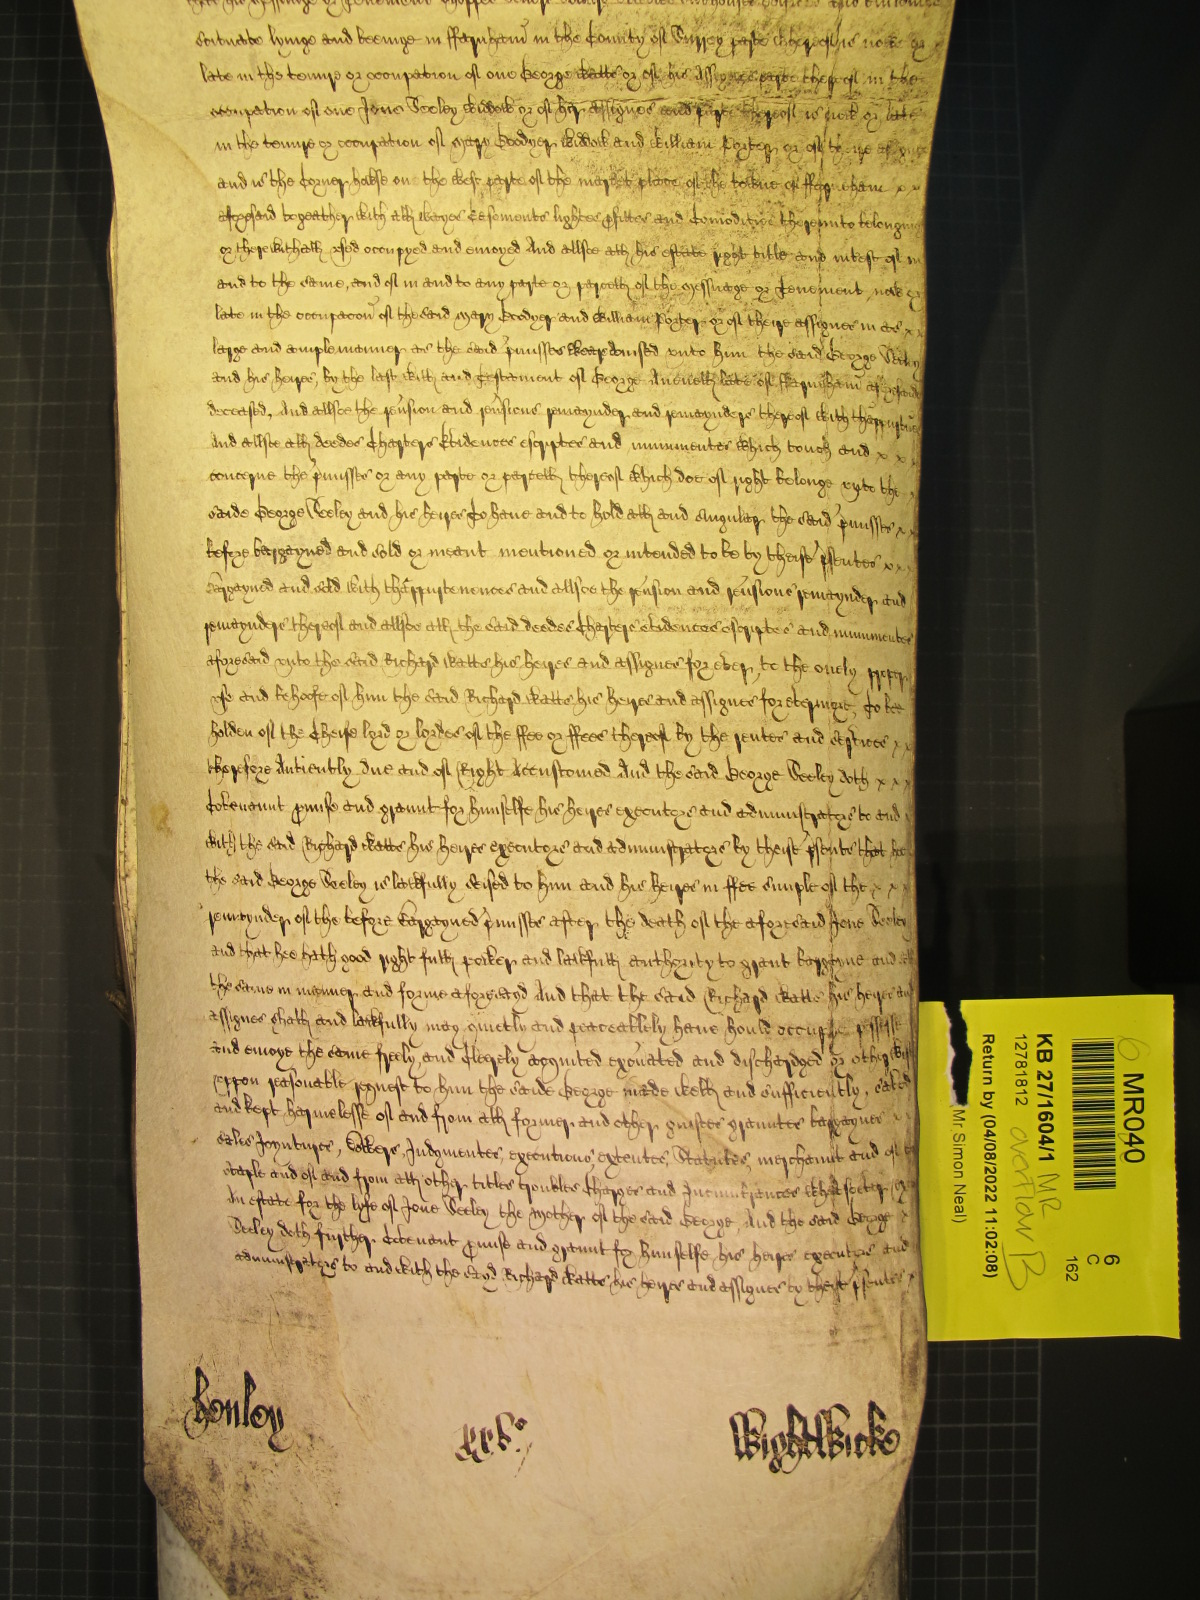 situate lyinge and beeinge in ffarnham in the County of Surrey parte whereof is nowe or
late in the tenure or occupation of one George Watts or of his Assignes parte thereof in the
occupation of one Jone Seeley widow or of her assignes and parte thereof is now or late
in the tenure or occupation of Mary Goodyer widow and William Porter or of theire assignes
and is the Corner howse on the west parte of the market place of the towne of ffarneham x x
aforesaid togeather with all wayes Easements lightes pfittes and Comodities thereunto belonging
or therewithall used occupyed and enioyed And allsoe all his estate right title and intest of in
and to the same, and of in and to any parte or parcell of the Messuage or Tenement now or
late in the occupacon of the said Mary Goodyer and William Porter or of theire assignes in as x x
large and ample manner as the said pmisses were devised unto him the said George Seeley
and his heires, by the last will and Testament of George late of ffarnham aforesaid
deceased, And allsoe the revsion and revsions remaynder and remaynders thereof with thappurtences
And allsoe all deedes Charters Evidences escriptes and munimentes which touch and x x x
concerne the pmisses or any parte or parcell thereof which doe of right belonge unto the x
saide George Seeley and his heires To have and to hold all and singular the said pmisses x x
before bargayned and sold or meant mentioned or intended to be by theise psentes x x x
Bargayned and sold with thappurtenences and allsoe the revsion and revsions remaynder and
remaynders thereof and allsoe all the said deedes Charters Evidences escriptes and munimentes
aforesaid unto the said Richard Watts his heires and assignes for ever, to the onely proper
use and behoofe of him the said Richard Watts his heires and assignes for evermore, To bee
holden of the Cheife lord or lordes of the ffee or ffees thereof by the rentes and services x x
therefore Antiently due and of Right Accustomed And the said George Seeley doth x x x
Covenannt pmise and graunt for himselfe his heires executors and administrators to and
with the said Richard Watts his heires executors and administrators by theise psents that hee
the said George Seeley is lawfully seised to him and his heires in ffee simple of the x x x
remaynder of the before Bargayned pmisses after the death of the aforesaid Jone Seeley
and that hee hath good right full power and lawfull authority to grant bargayne and sell
the same in manner and forme aforesayd And that the said Richard Watts his heires and
assignes shall and lawfully may quietly and peaceablely have hould occupye possesse
and enioye the same freely and Cleerely acquited exonated and discharged or otherwise
uppon reasonable request to him the saide George made well and sufficiently, saved
and kept harmelesse of and from all former and other guiftes grauntes bargaynes x x
sales Joyntures, Dowers, Judgmentes, executions, extentes, Statutes, merchannt and of the
staple and of and from all other titles troubles Charges and Incumbrances whatsoever
An estate for the lyfe of Jone Seeley the Mother of the said George, And the said George x
Seeley doth further Covenant pmise and graunt for himselfe his heires executors and
administrators to and with the sayd Richard Watts his heires and assignes by theise psentes x
Henley
WightWicke
6 MR040
KB 27/1604/1 MR
12781812 overflow B
Return by (04/08/2022 11:02:08)
Mr Simon Neal)
6
C
162